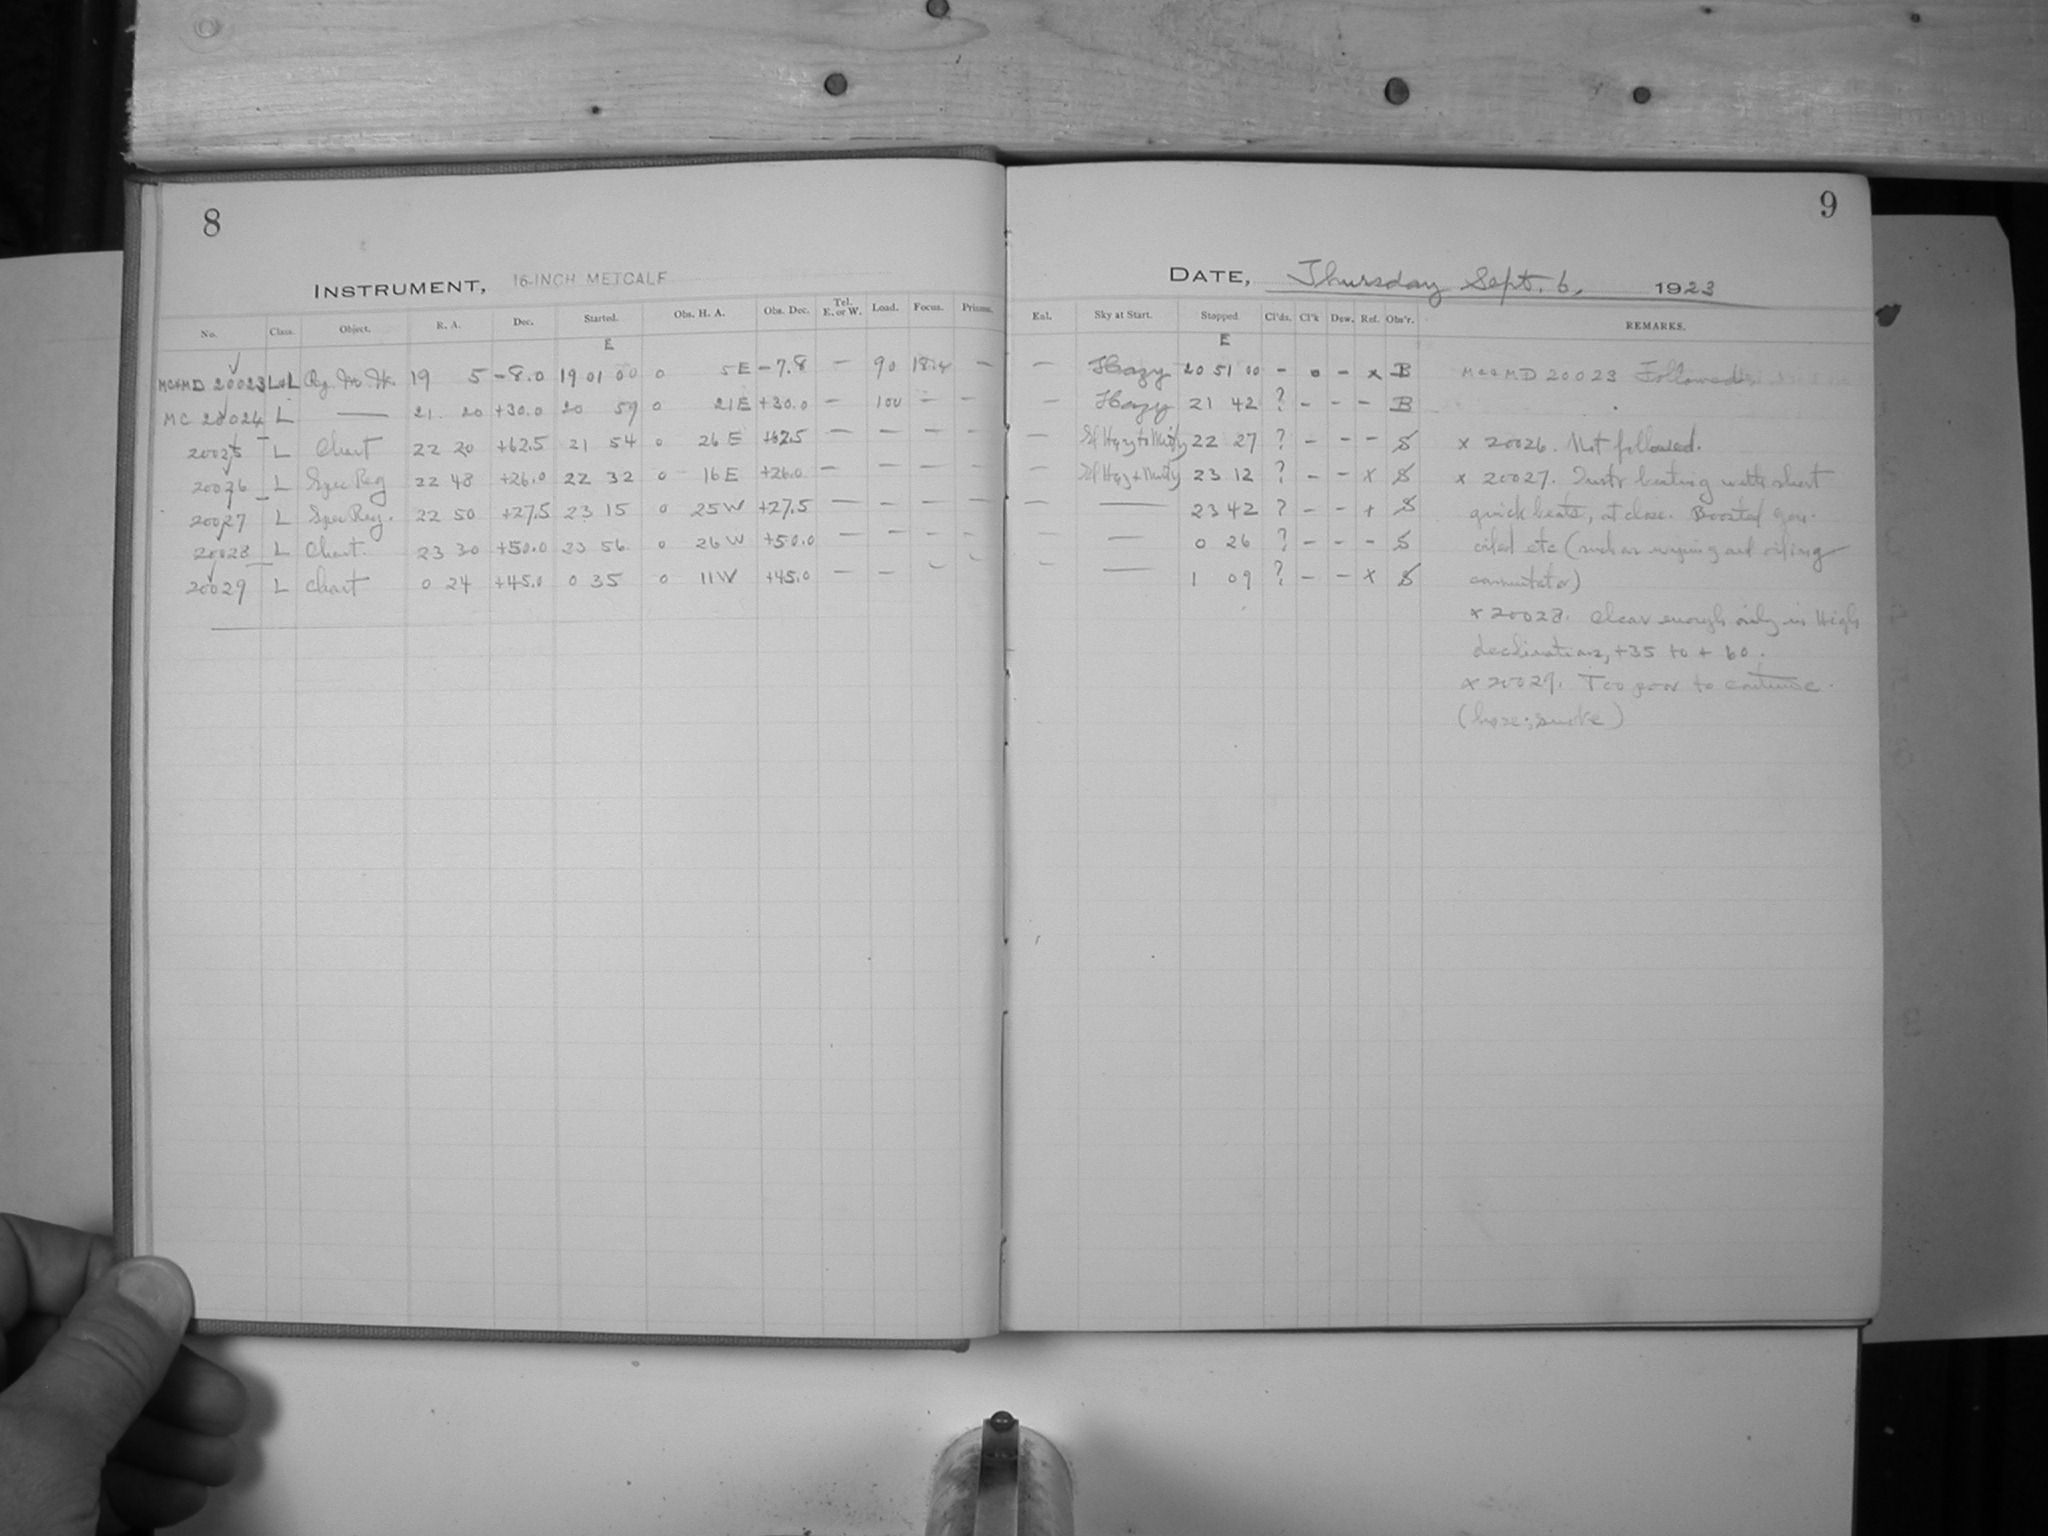 8
INSTRUMENT, 16-INCH METCALF
No. Class. Object. R. A. Dec. Started. Obs. H. A. Obs. Dec. Tel. E. or W. Load. Focus. Prisms.
E
MC&MD 20023 L&L 19 5 -8.0 19 01 00 0 5 E -7.8 — 90 18.4 —
MC 20024 L — 21 20 +30.0 20 59 0 21 E +30.0 — 100 — —
20025 L Chart 22 20 +62.5 21 54 0 26 E +62.5 — — — —
20026 L Spec Reg 22 48 +26.0 22 32 0 16 E +26.0 — — — —
20027 L Spec Reg. 22 50 +27.5 23 15 0 25 W +27.5 — — — —
20028 L Chart. 23 30 +50.0 23 56 0 26 W +50.0 — — — —
20029 L Chart 0 24 +45.0 0 35 0 11 W +45.0 — — — —
9
DATE, Thursday Sept. 6, 1923
Eal. Sky at Start. Stopped Cl'ds. Cl'k Dew. Ref. Obs'r. REMARKS.
E
— Hazy 20 51 00 - o - x B MC&MD 20023 Followed
— Hazy 21 42 ? - - - B
— Sl Hazy to Misty 22 27 ? - - - S x 20026. Not followed.
— Sl Hazy & Misty 23 12 ? - - x S x 20027. Instr beating with short
— — 23 42 ? - - x S quick beats, at close. Boosted gov.
— 0 26 ? - - - S oiled etc (such as wiping and oiling
— — 1 09 ? - - x S commutator)
x 20028. Clear enough only in High
declinations, +35 to + 60.
x 20029. Too poor to continue.
(haze; smoke)